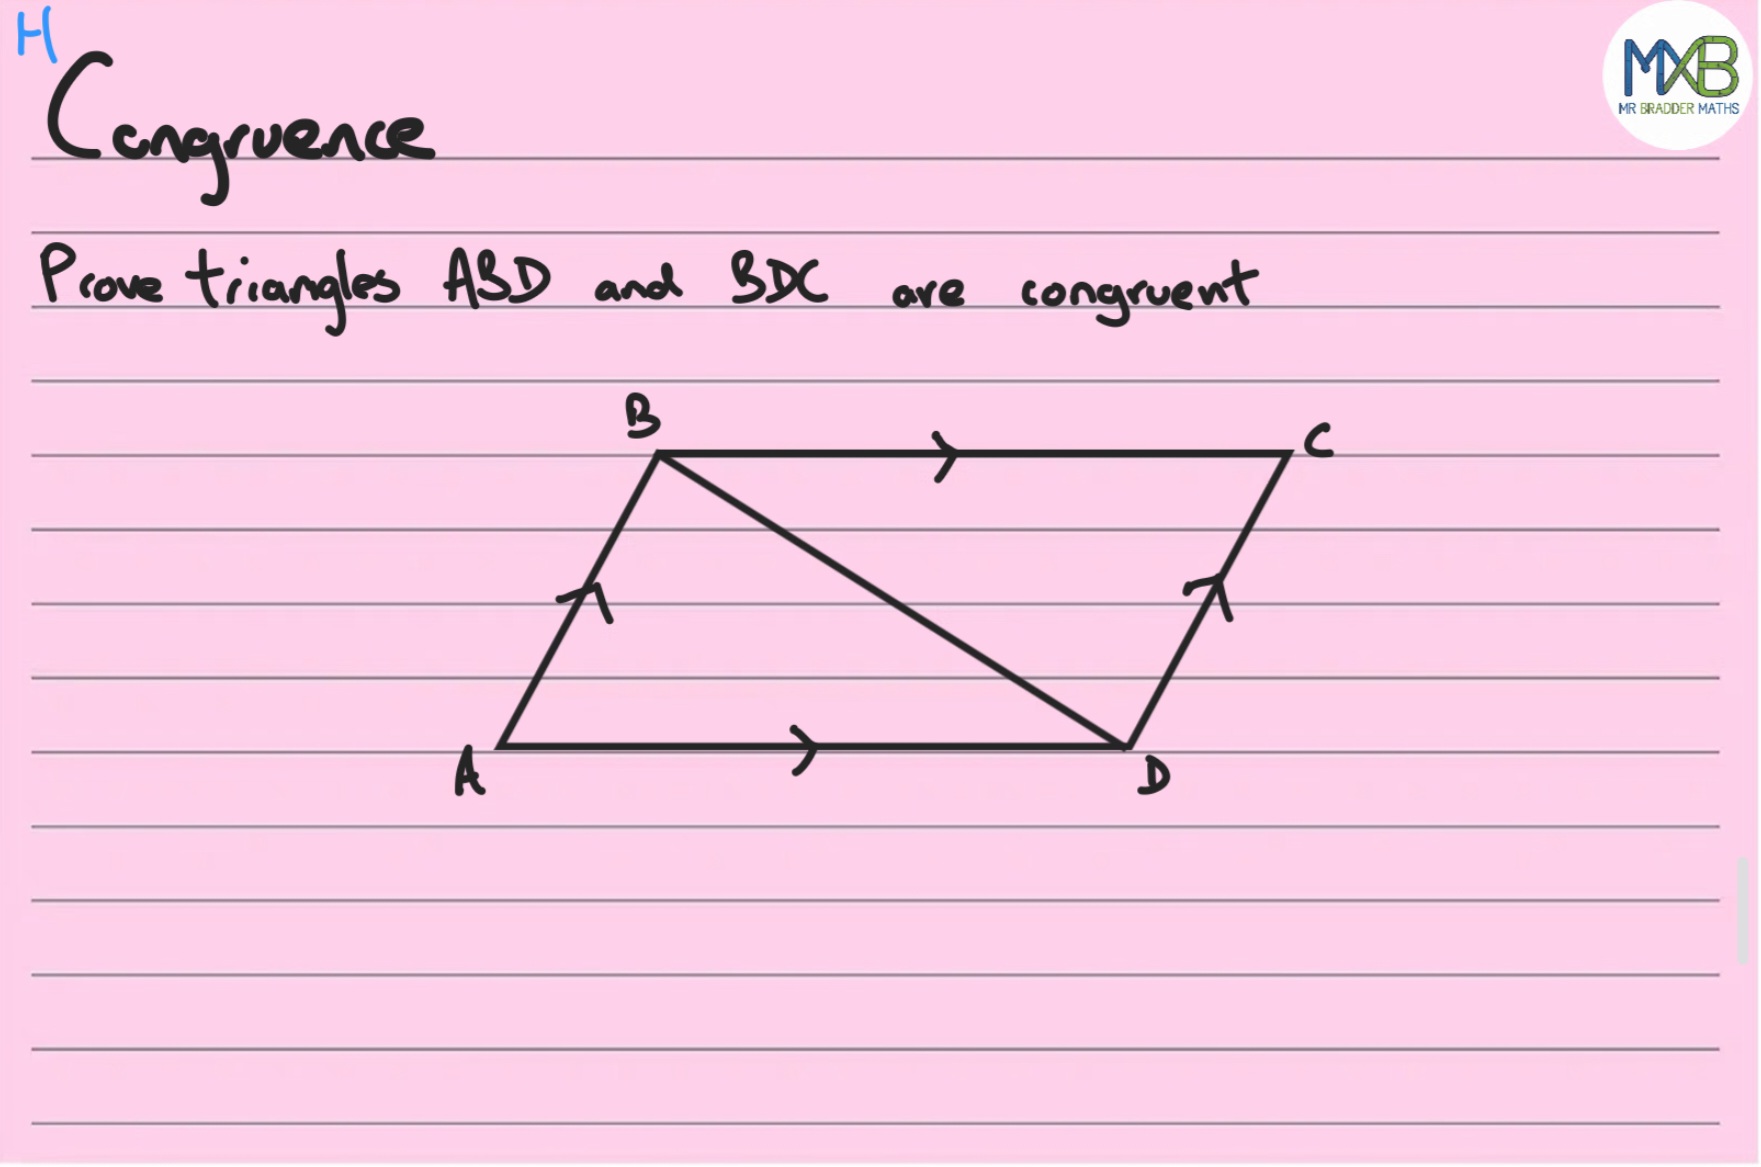 H
Congruence
MXB
MR BRADDER MATHS
Prove triangles ABD and BDC are congruent
B
C
A
D